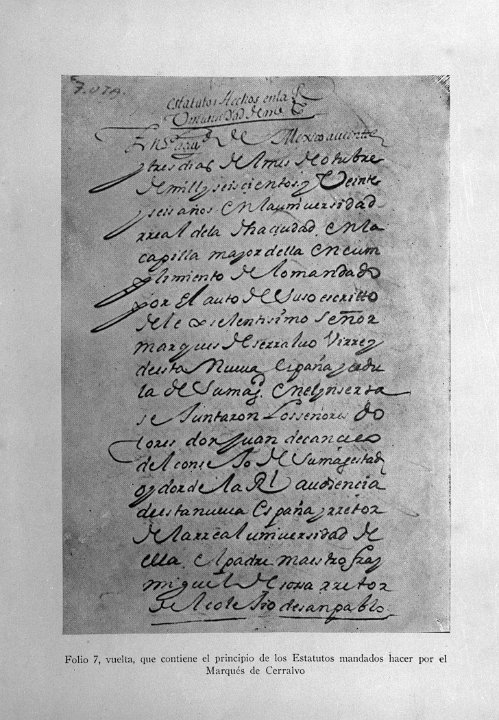 7. VTA.
estatutos Hechos en la R
Vniuersidad de mex
En la ciudad de Mexico a veinte
y tres dias de el mes de otubre
de mill y seiscientos y Veinte
y seis años en la uniuersidad
rreal de la dha ciudad. en la
capilla mayor della en cum
plimiento de lo mandado
por El auto de Suso escritto
de le exselentissimo Señor
marques de serraluo Virrey
de esta nueua españa y cedu
la de Sumagd. en el ynserta
se Juntaron Los señores do
tores don Juan de canseco
del conse Jo de Sumagestad
oydor de la Rl audiencia
de esta nueua España y rretor
de la rreal uniuersidad de
ella. el padre maestro fray
miguel de sosa rretor
de el cole Jio de san pablo
Folio 7, vuelta, que contiene el principio de los Estatutos mandados hacer por el
Marqués de Cerralvo